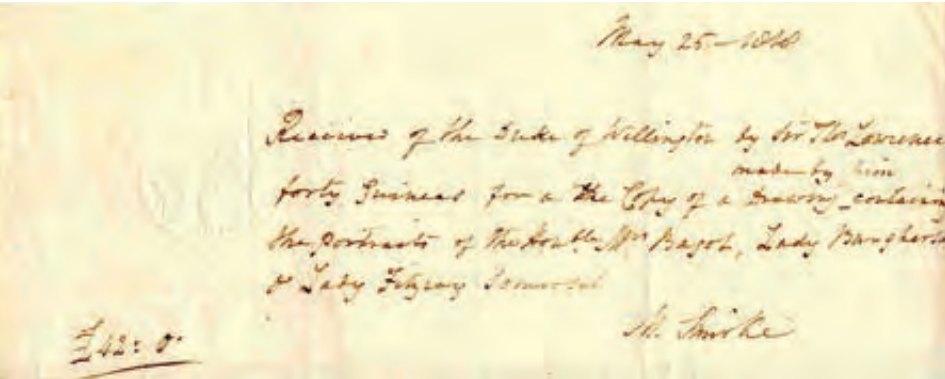 May 25 - 1818
Received of the Duke of Wellington by Sir Thos Lawrence
made by him
forty Guineas for a the Copy of a Drawing containing
the portraits of the Honble Mrs Bagot, Lady Burghersh
& Lady Fitzroy Somerset
M. Smirke
£42: 0.